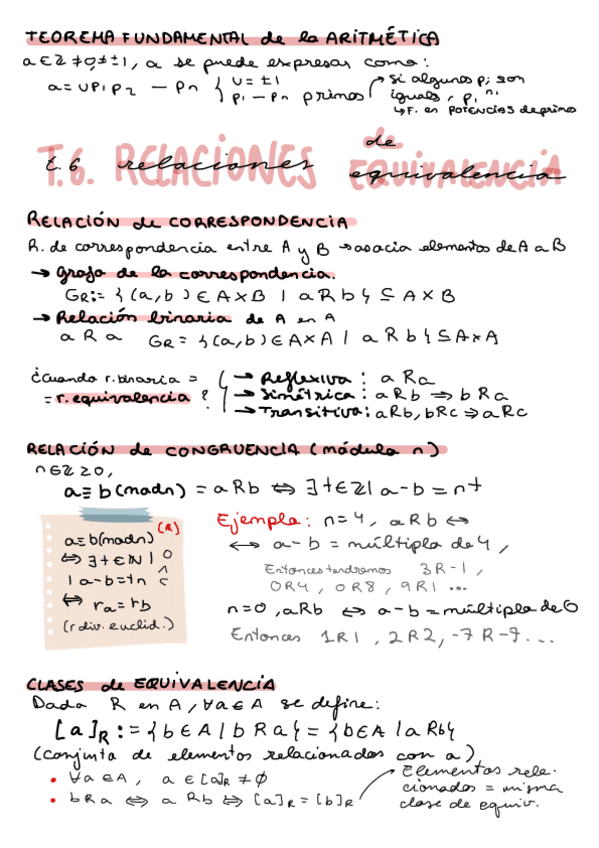 TEOREMA FUNDAMENTAL de la ARITMÉTICA
a ∈ Z ≠ 0, ≠ ±1, a se puede expresar como:
a = u p₁ p₂ — pₙ { u = ±1
p₁ — pₙ primos
si algunos pᵢ son
iguales, pᵢⁿⁱ
↳ F. en POTENCIAS de primos
T.6. RELACIONES de EQUIVALENCIA
t.6 relaciones de equivalencia
RELACIÓN de CORRESPONDENCIA
R. de correspondencia entre A y B → asocia elementos de A a B
→ Grafo de la correspondencia.
G_R := {(a,b) ∈ A×B | a R b} ⊆ A × B
→ Relación binaria de A en A
a R a G_R = {(a,b) ∈ A×A | a R b} ⊆ A×A
¿Cuando r. binaria =
= r. equivalencia?
→ Reflexiva: a Ra
→ Simétrica: aRb ⇒ bRa
→ Transitiva: aRb, bRc ⇒ aRc
RELACIÓN de CONGRUENCIA (módulo n)
n ∈ Z ≥ 0,
a ≡ b (mod n) = aRb ⇔ ∃ t ∈ Z | a - b = nt
(R)
a ≡ b (mod n)
⇔ ∃ t ∈ N | 0
| a - b = tn
⇔ ra = rb
(r div. euclid.)
Ejemplo: n = 4, aRb ↔
↔ a - b = múltiplo de 4,
Entonces tendremos 3R-1,
0R4, 0R8, 9R1 ...
n=0, aRb ⇔ a - b = múltiplo de 0
Entonces 1R1, 2R2, -7 R -7...
CLASES de EQUIVALENCIA
Dada R en A, ∀a ∈ A se define:
[a]_R := {b ∈ A | b R a} = {b ∈ A | a Rb}
(conjunto de elementos relacionados con a)
• ∀a ∈ A, a ∈ [a]_R ≠ ∅
• bRa ⇔ a Rb ⇔ [a]_R = [b]_R
Elementos rela-
cionados = misma
clase de equiv.